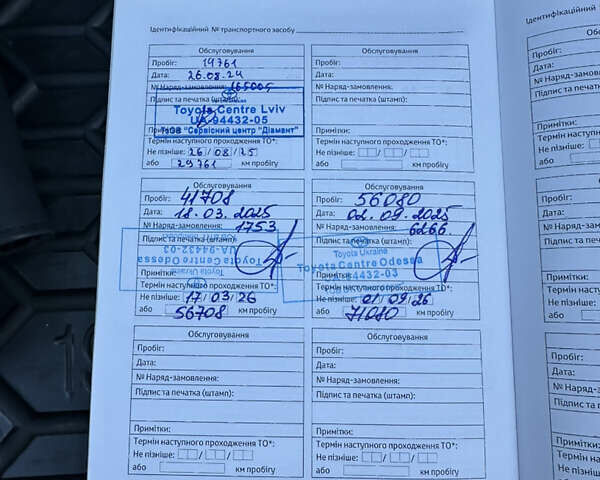 Ідентифікаційний № транспортного засобу
Обслуговування
Пробіг: 19761
Дата: 26.08.24
№ Наряд-замовлення: 165005
Підпис та печатка (штамп):
Toyota Centre Lviv
UA-94432-05
ТзОВ "Сервісний центр "Діамант"
Термін наступного проходження ТО*:
Не пізніше: 26 / 08 / 25
або 29761 км пробігу
Обслуговування
Пробіг:
Дата:
№ Наряд-замовлення:
Підпис та печатка (штамп):
Примітки:
Термін наступного проходження ТО*:
Не пізніше: / /
або км пробігу
Обслуговування
Пробіг: 41708
Дата: 18.03.2025
№ Наряд-замовлення: 1753
Підпис та печатка (штамп):
UA-94432-03
Toyota Centre Odessa
Toyota Ukraine
Примітки:
Термін наступного проходження ТО*:
Не пізніше: 17 / 03 / 26
або 56708 км пробігу
Обслуговування
Пробіг: 56080
Дата: 02.09.2025
№ Наряд-замовлення: 6266
Підпис та печатка (штамп):
Toyota Ukraine
Toyota Centre Odessa
94432-03
Примітки:
Термін наступного проходження ТО*:
Не пізніше: 01 / 09 / 26
або 71080 км пробігу
Обслуговування
Пробіг:
Дата:
№ Наряд-замовлення:
Підпис та печатка (штамп):
Примітки:
Термін наступного проходження ТО*:
Не пізніше: / /
або км пробігу
Обслуговування
Пробіг:
Дата:
№ Наряд-замовлення:
Підпис та печатка (штамп):
Примітки:
Термін наступного проходження ТО*:
Не пізніше: / /
або км пробігу
Ідентифікаційний № тра
Об
Пробіг:
Дата:
№ Наряд-замов
Підпис та печат
Примітки:
Термін наступ
Не пізніше:
або